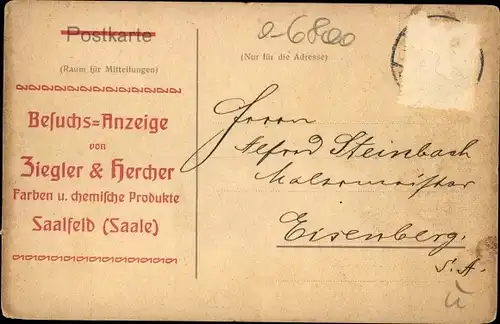 Postkarte
(Raum für Mitteilungen)
Besuchs=Anzeige
von
Ziegler & Hercher
Farben u. chemische Produkte
Saalfeld (Saale)
0-6800
(Nur für die Adresse)
Herrn
Alfred Steinbach
Malermeister
Eisenberg.
S. A.